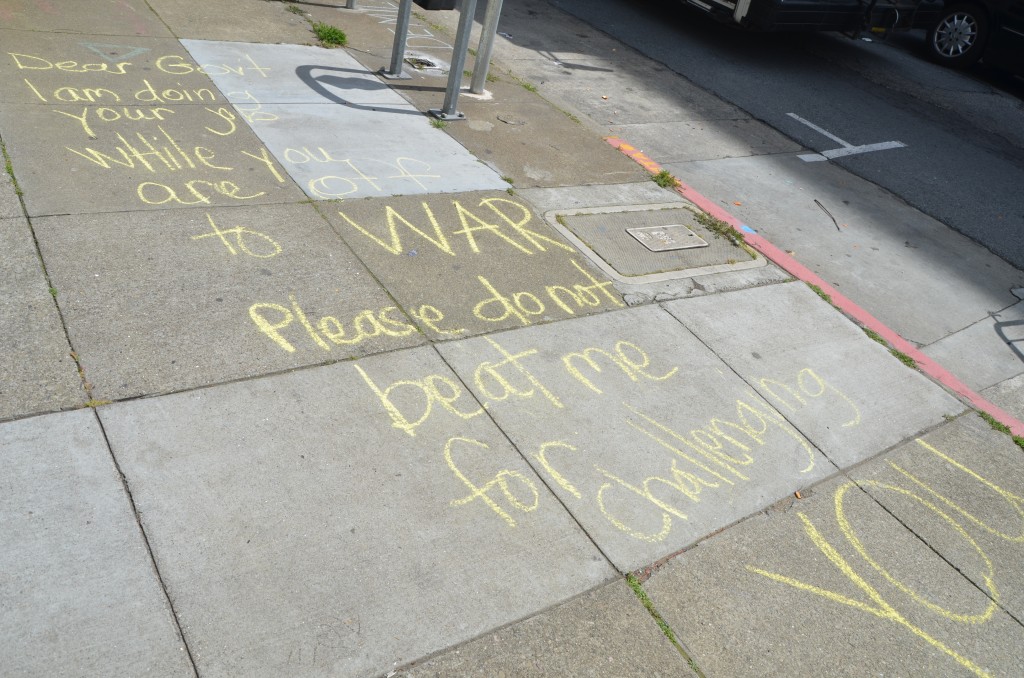 Dear Gov't
I am doing
your job
while you
are off
to WAR
Please do not
beat me
for challenging
YOU